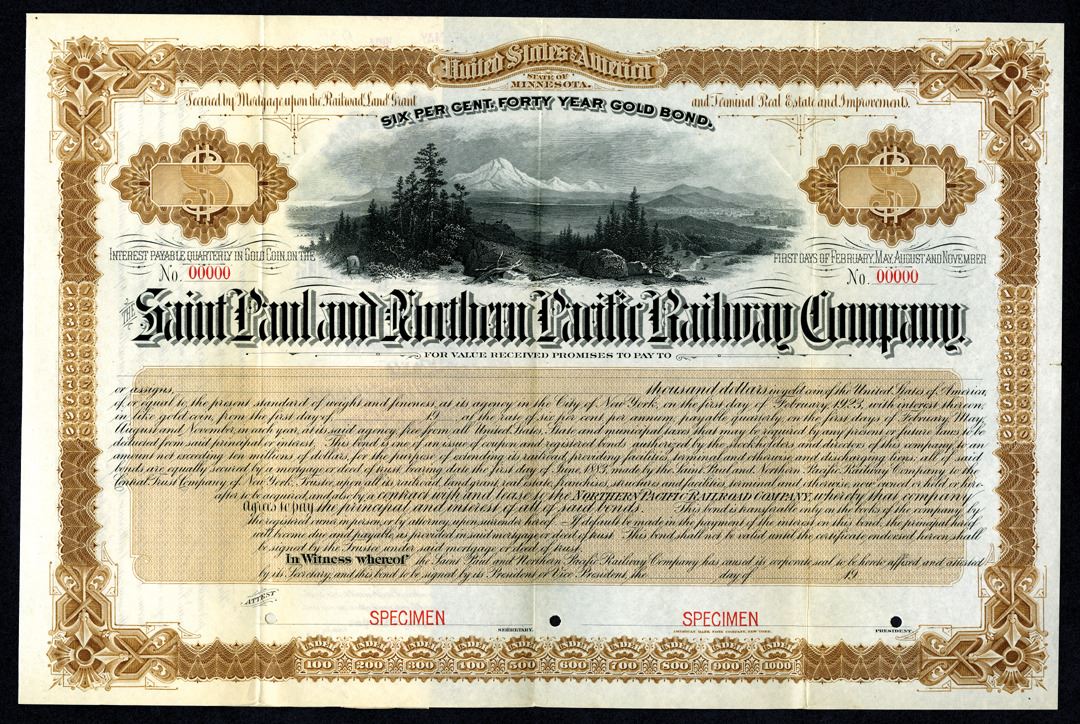 United States of America
STATE OF
MINNESOTA.
Secured by Mortgage upon the Railroad, Land Grant and Terminal Real Estate and Improvements.
SIX PER CENT. FORTY YEAR GOLD BOND.
INTEREST PAYABLE QUARTERLY IN GOLD COIN, ON THE FIRST DAYS OF FEBRUARY, MAY, AUGUST AND NOVEMBER
No. 00000 No. 00000
THE Saint Paul and Northern Pacific Railway Company.
FOR VALUE RECEIVED PROMISES TO PAY TO
or assigns, thousand dollars in gold coin of the United States of America,
of, or equal to, the present standard of weight and fineness, at its agency in the City of New York, on the first day of February, 1923, with interest thereon,
in like gold coin, from the first day of 19 at the rate of six per cent per annum, payable quarterly, on the first days of February, May,
August and November, in each year, at its said agency, free from all United States, State and municipal taxes that may be required by any present or future laws to be
deducted from said principal or interest. This bond is one of an issue of coupon and registered bonds authorized by the stockholders and directors of this company, to an
amount not exceeding ten millions of dollars, for the purpose of extending its railroad, providing facilities, terminal and otherwise, and discharging liens, all of said
bonds are equally secured by a mortgage or deed of trust bearing date the first day of June, 1883, made by the Saint Paul and Northern Pacific Railway Company to the
Central Trust Company of New York, Trustee, upon all its railroad, land grant, real estate, franchises, structures and facilities, terminal and otherwise, now owned or held or here-
after to be acquired, and also by a contract with and lease to the NORTHERN PACIFIC RAILROAD COMPANY, whereby that company
agrees to pay the principal and interest of all of said bonds. This bond is transferable only on the books of the company by
the registered owner in person, or by attorney, upon surrender hereof. If default be made in the payment of the interest on this bond, the principal hereof
will become due and payable, as provided in said mortgage or deed of trust. This bond shall not be valid until the certificate endorsed hereon shall
be signed by the Trustee under said mortgage or deed of trust.
In Witness whereof the Saint Paul and Northern Pacific Railway Company has caused its corporate seal to be hereto affixed and attested
by its Secretary, and this bond to be signed by its President or Vice President, the day of 19
ATTEST
SPECIMEN SPECIMEN
SECRETARY. AMERICAN BANK NOTE COMPANY, NEW YORK. PRESIDENT.
UNDER 100 UNDER 200 UNDER 300 UNDER 400 UNDER 500 UNDER 600 UNDER 700 UNDER 800 UNDER 900 UNDER 1000